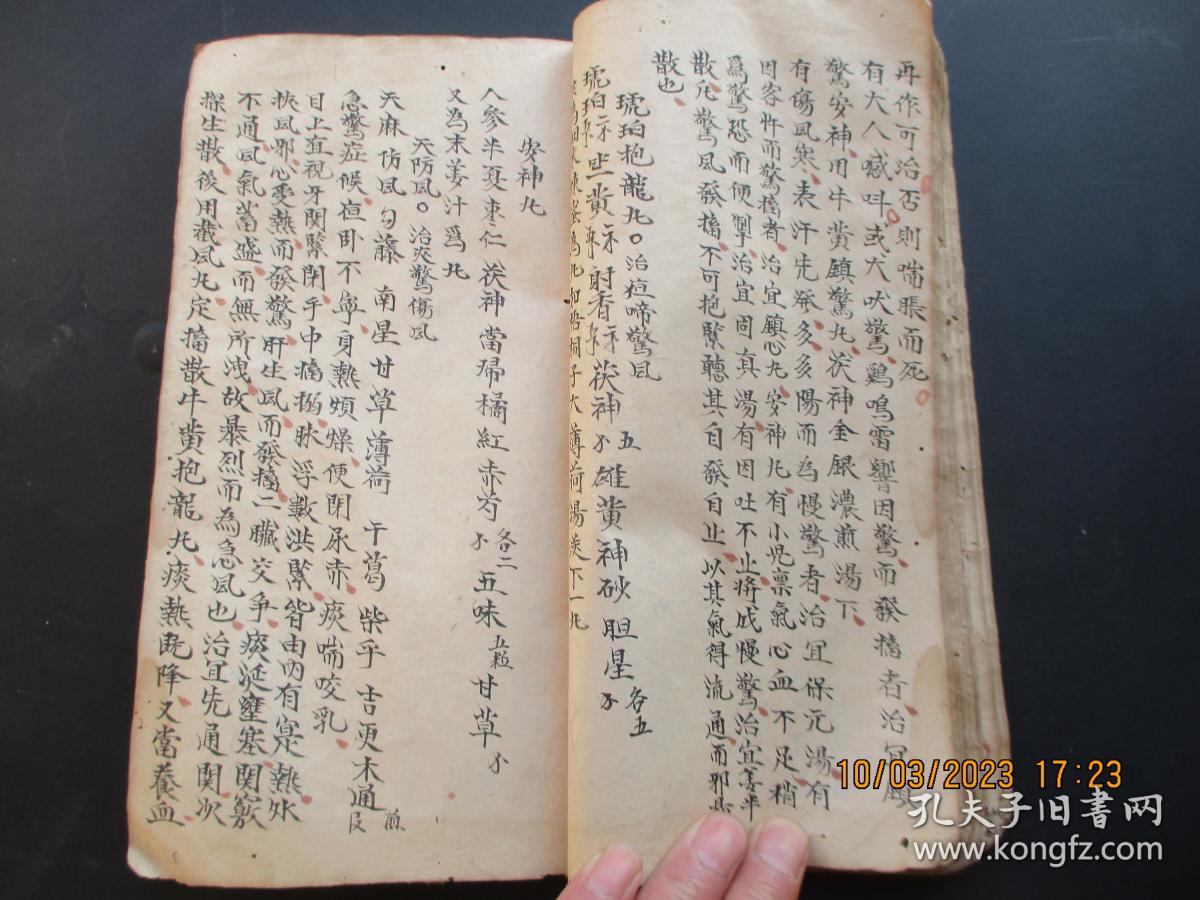 再作可治否則喘脹而死
有大人喊呌或犬吠驚鷄鳴雷響因驚而發搐者治宜
驚安神用牛黄鎮驚丸茯神金銀濃煎湯下
有傷風寒表汗先發多多陽而為慢驚者治宜保元湯有
因客忤而驚搐者治宜鎮心丸安神丸有小児禀氣心血不足稍
爲驚恐而便治宜固真湯有因吐不止將成慢驚治宜姜半
散凡驚風發搐不可抱緊聽其自發自止以其氣得流通而邪
散也
琥珀抱龍丸。治痘啼驚風
琥珀黄射香茯神五雄黄神砂胆星各五
蜜為丸如梧桐子大薄荷湯送下一丸
安神丸
人參半夏枣仁茯神當帰橘紅赤芍各二五味五粒甘草
又為末姜汁爲丸
天防風。治驚傷風
天麻防風勾藤南星甘草薄荷干葛柴乎吉更木通
急驚症候痘卧不寧身熱煩燥便閉尿赤痰喘咬乳
目上直視牙関緊閉手中搐搦脉浮數洪緊皆由內有寔熱外
挾風邪心受熱而發驚肝生風而發搐二臟交争痰涎壅塞関竅
不通風氣蓄盛而無所洩故暴烈而為急風也治宜先通関次
探生散後用截風丸定搐散牛黄抱龍丸痰熱既降又當養血
10/03/2023 17:23
孔夫子旧书网
www.kongfz.com